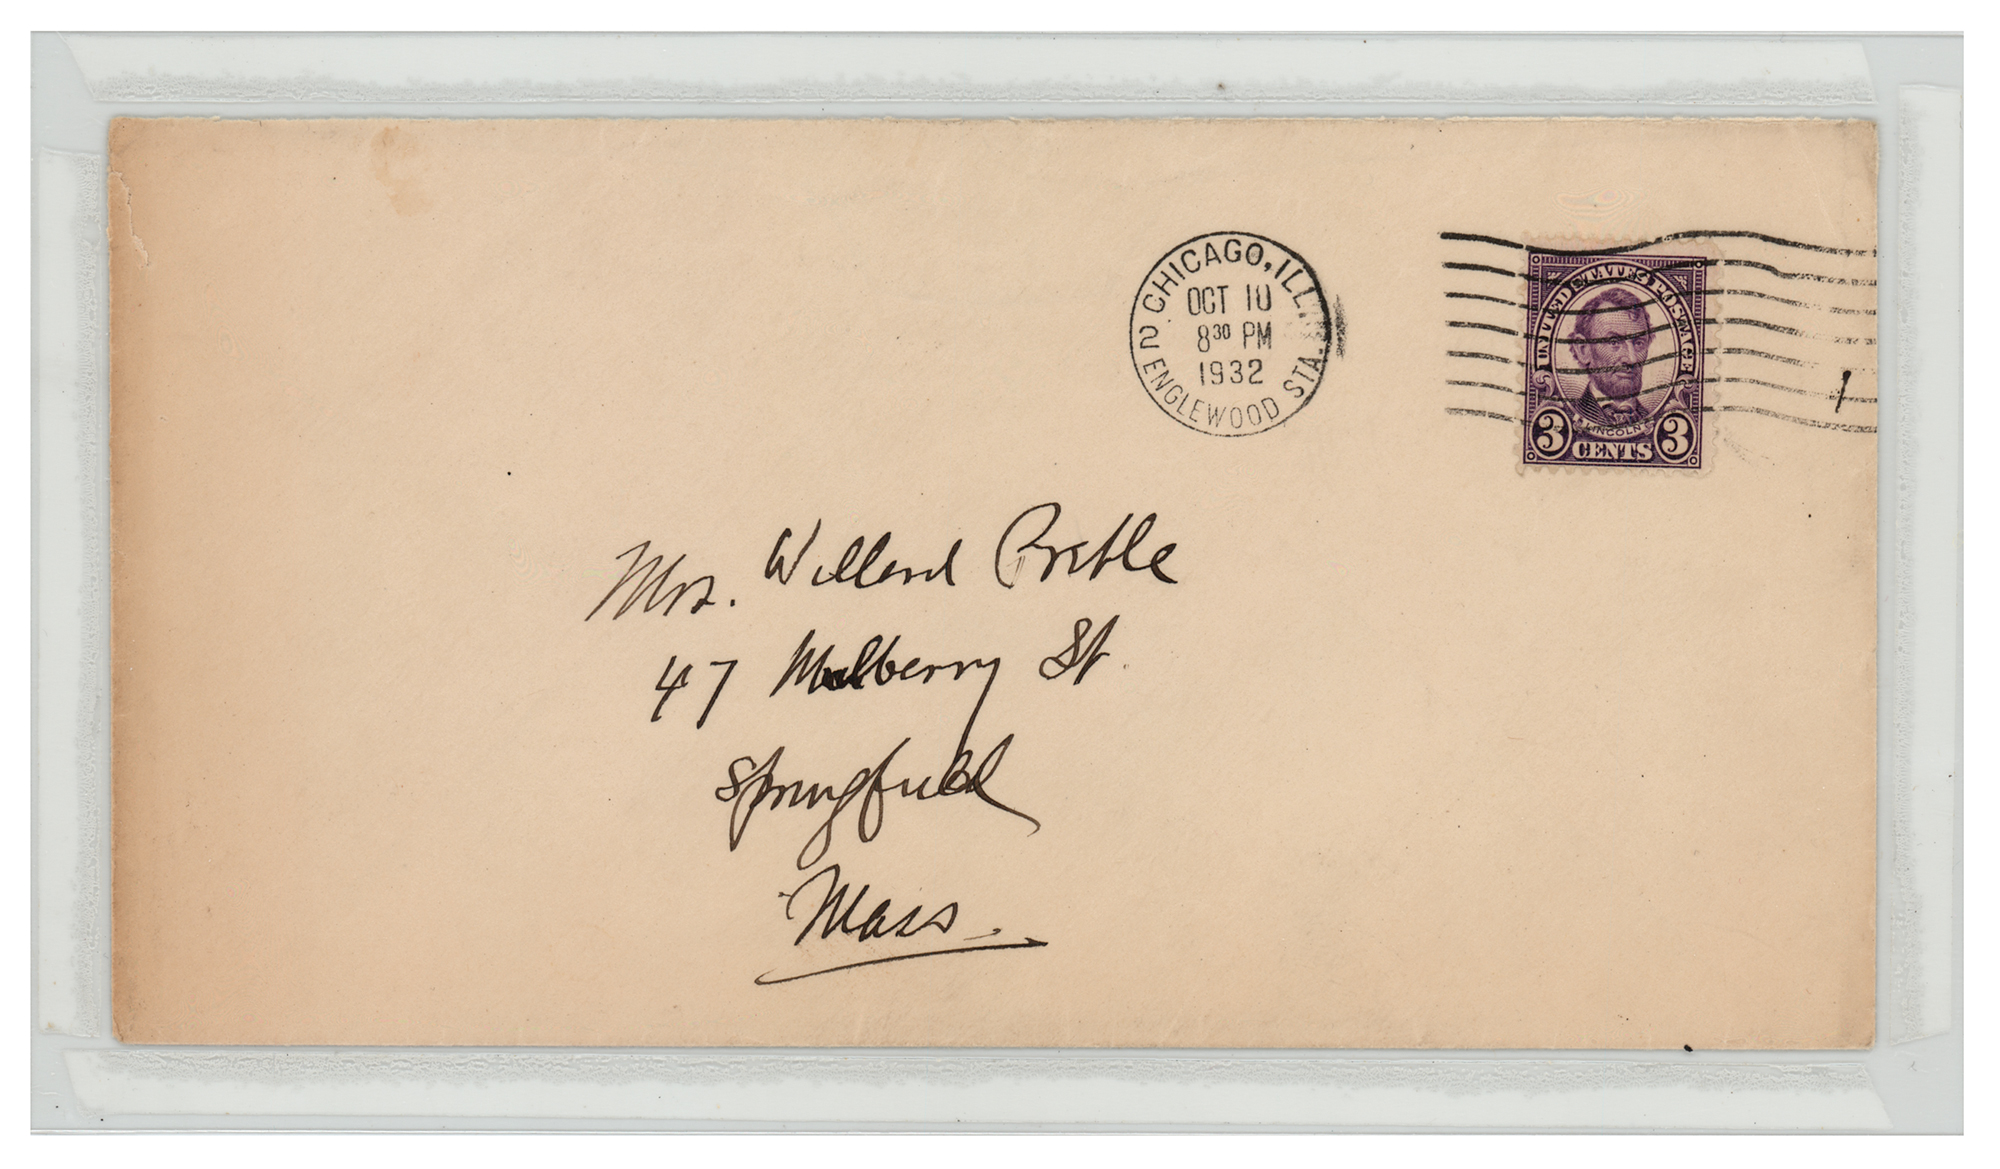 CHICAGO, ILL.
OCT 10
8³⁰ PM
1932
2 ENGLEWOOD STA.
UNITED STATES POSTAGE
LINCOLN
3 CENTS 3
Mrs. Willard Preble
47 Mulberry St.
Springfield
Mass.